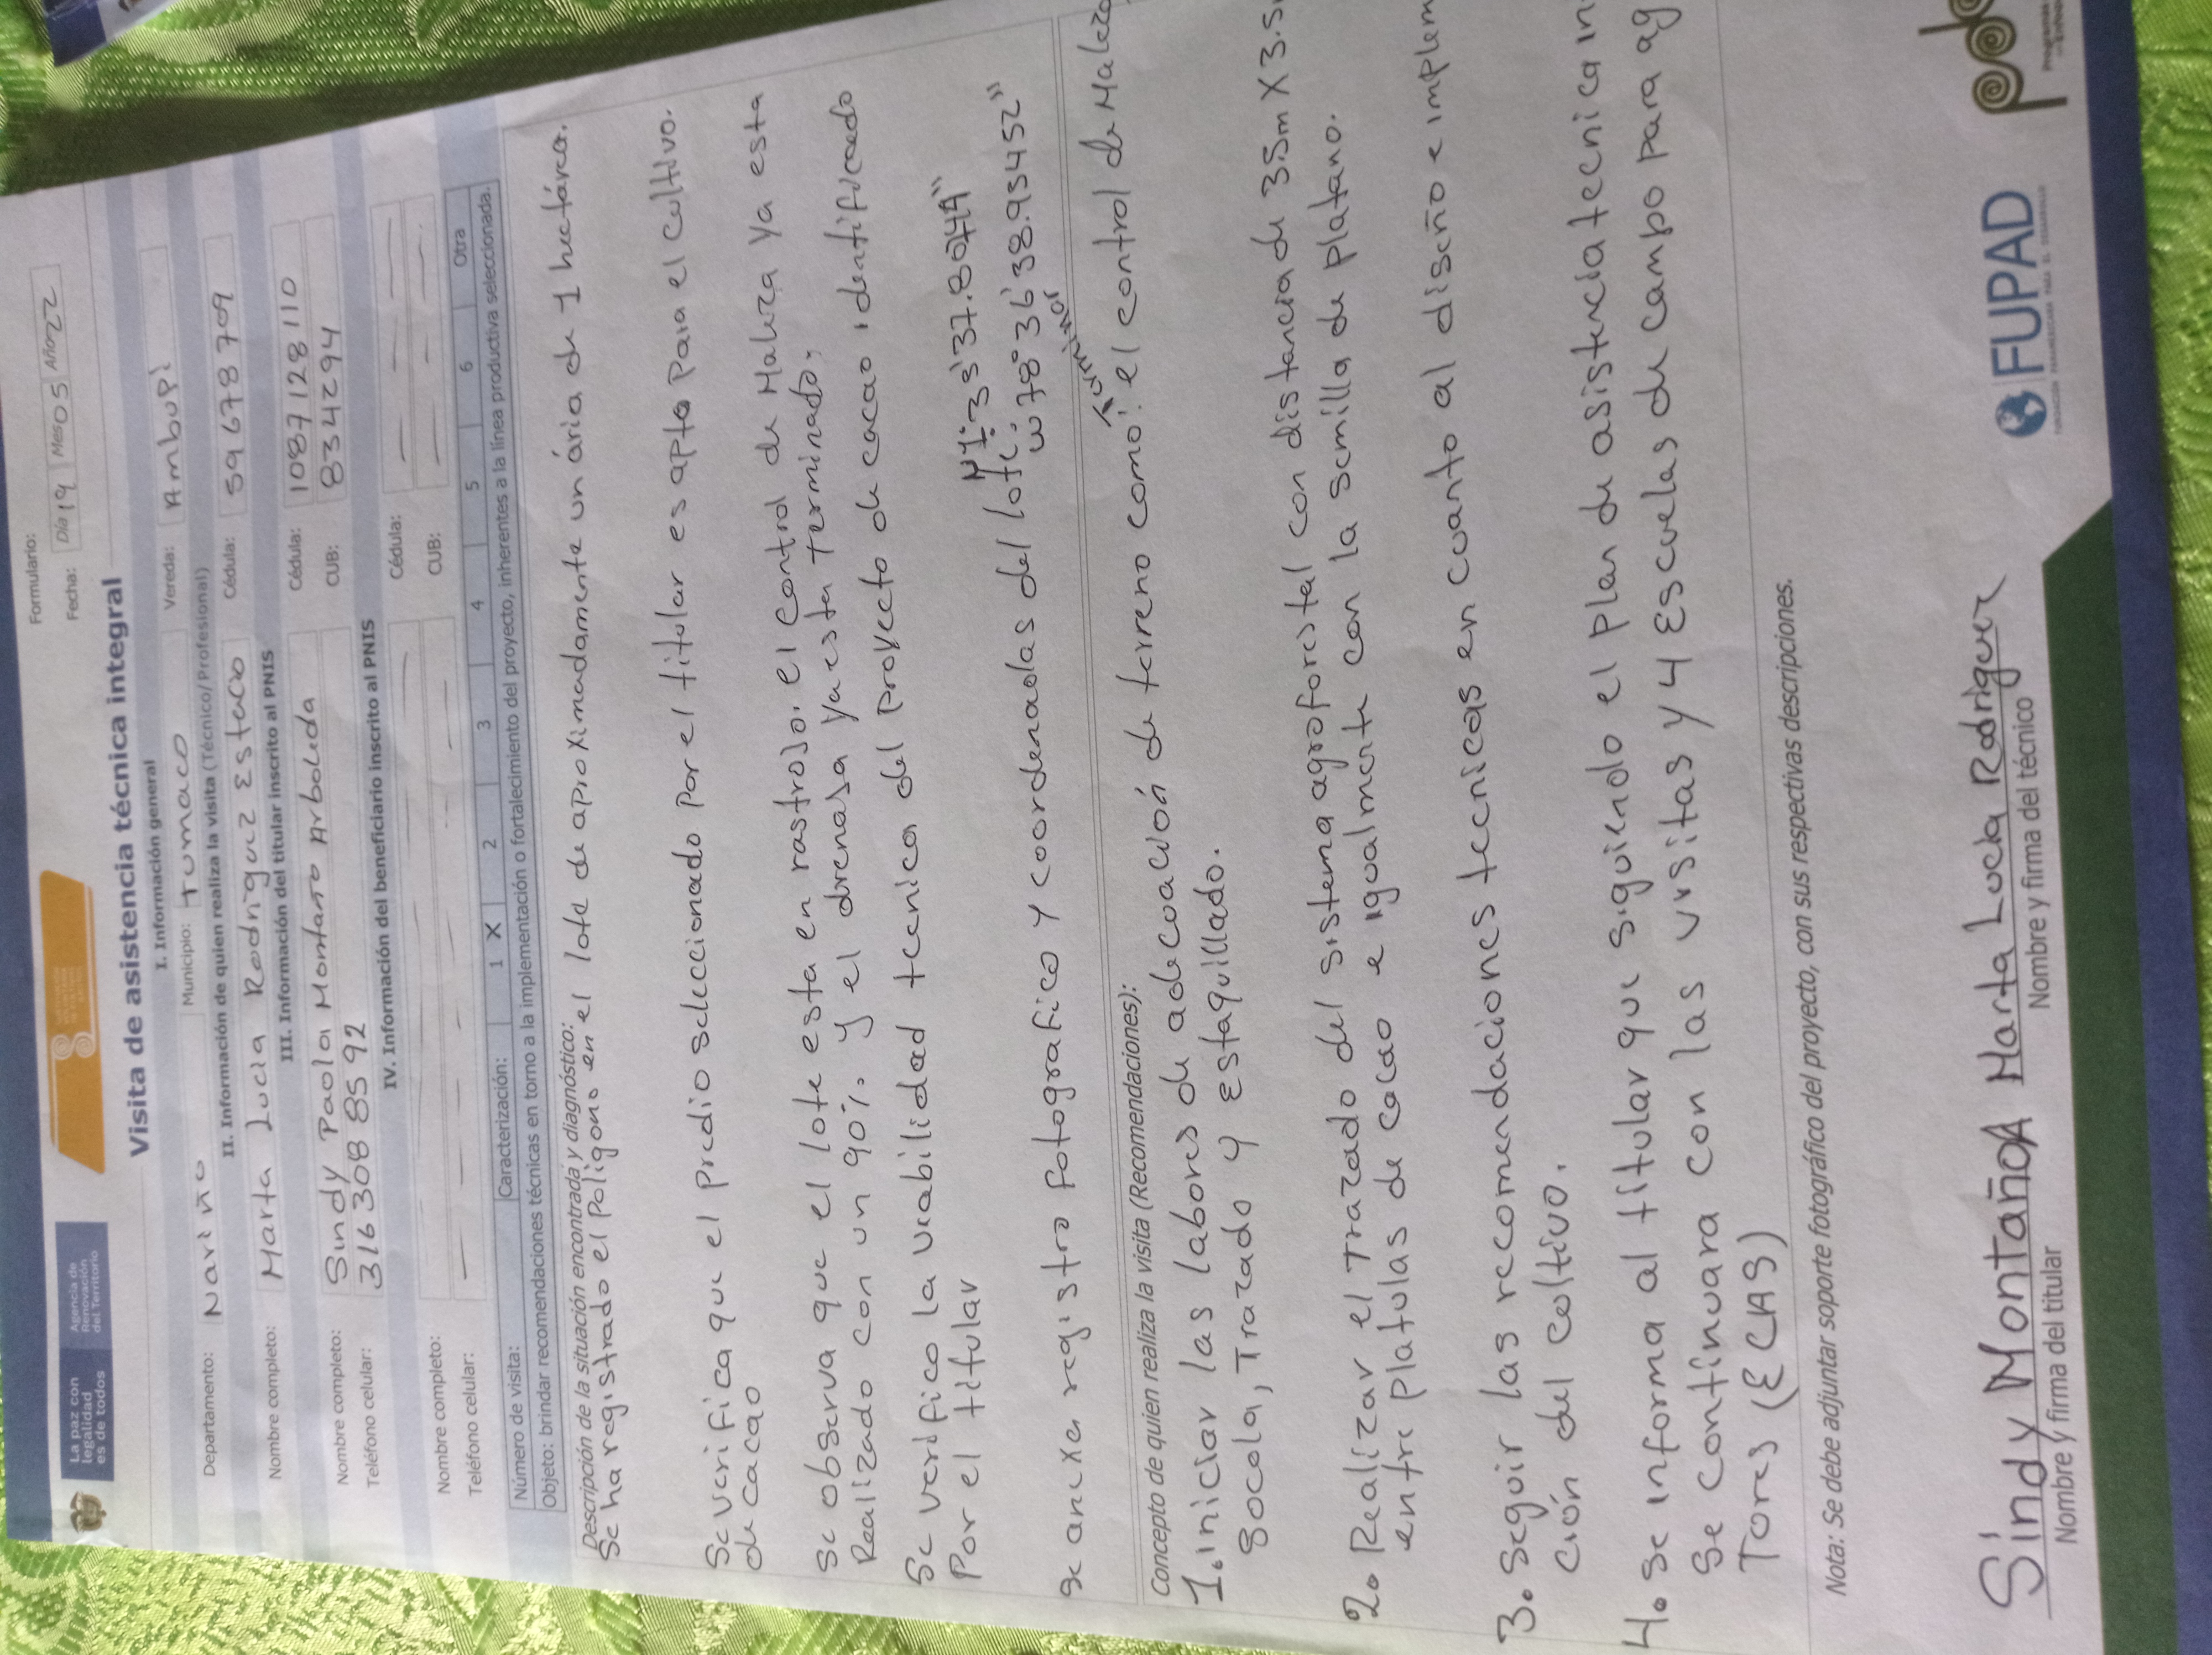 La paz con
legalidad
es de todos
Agencia de
Renovación
del Territorio
Formulario:
Fecha: Día 19 Mes 05 Año 22
Visita de asistencia técnica integral
I. Información general
Departamento: Nariño Municipio: tumaco Vereda: Ambupí
II. Información de quien realiza la visita (Técnico/Profesional)
Nombre completo: Marta Lucia Rodriguez Estaco Cédula: 59678709
III. Información del titular inscrito al PNIS
Nombre completo: Sindy Paola Montaño Arboleda Cédula: 1087128110
Teléfono celular: 3163088592 CUB: 834294
IV. Información del beneficiario inscrito al PNIS
Nombre completo: Cédula:
Teléfono celular: CUB:
Número de visita: Caracterización: 1 X 2 3 4 5 6 Otra
Objeto: brindar recomendaciones técnicas en torno a la implementación o fortalecimiento del proyecto, inherentes a la línea productiva seleccionada.
Descripción de la situación encontrada y diagnóstico:
Se ha registrado el Poligono en el lote de aproximadamente un ária de 1 hectárea.
Se verifica que el predio seleccionado Por el titular es apto Para el cultivo.
de cacao
se observa que el lote esta en rastrojo. el control de Maleza ya esta
Realizado con un 90%. y el drenaja ya esta terminado.
Se verifico la viabilidad tecnica del proyecto de cacao identificado
Por el titular
N 1° 35' 37.80719"
se anexa registro fotografico y coordenadas del lote: W 78° 36' 38.95452"
terminar
Concepto de quien realiza la visita (Recomendaciones):
1. iniciar las labores de adecuación de terreno como: el control de Maleza,
Socola, Trazado y Estaquillado.
2. Realizar el Trazado del sistema agroforestal con distancia de 3.5m X 3.5
entre platulas de cacao e igualmente con la semilla de platano.
3. seguir las recomendaciones tecnicas en cuanto al diseño e implem
ción del cultivo.
4. se informa al titular que siguiendo el plan de asistencia tecnica in
Se continuara con las visitas y 4 Escuelas de campo para ag
Tores (ECAS)
Nota: Se debe adjuntar soporte fotográfico del proyecto, con sus respectivas descripciones.
Sindy Montaño A Marta Lucia Rodriguez
Nombre y firma del titular Nombre y firma del técnico
FUPAD